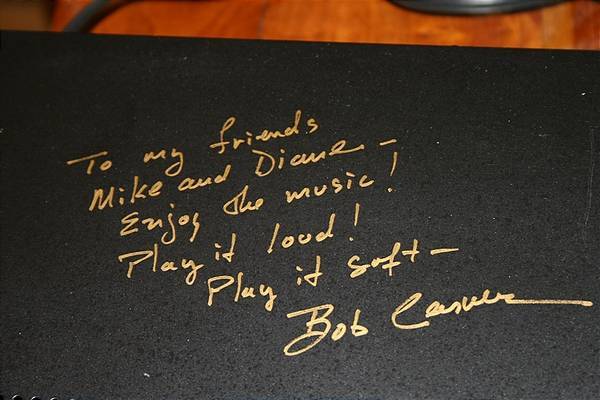 To my friends
Mike and Diane -
Enjoy the music!
Play it loud!
Play it soft -
Bob Carver